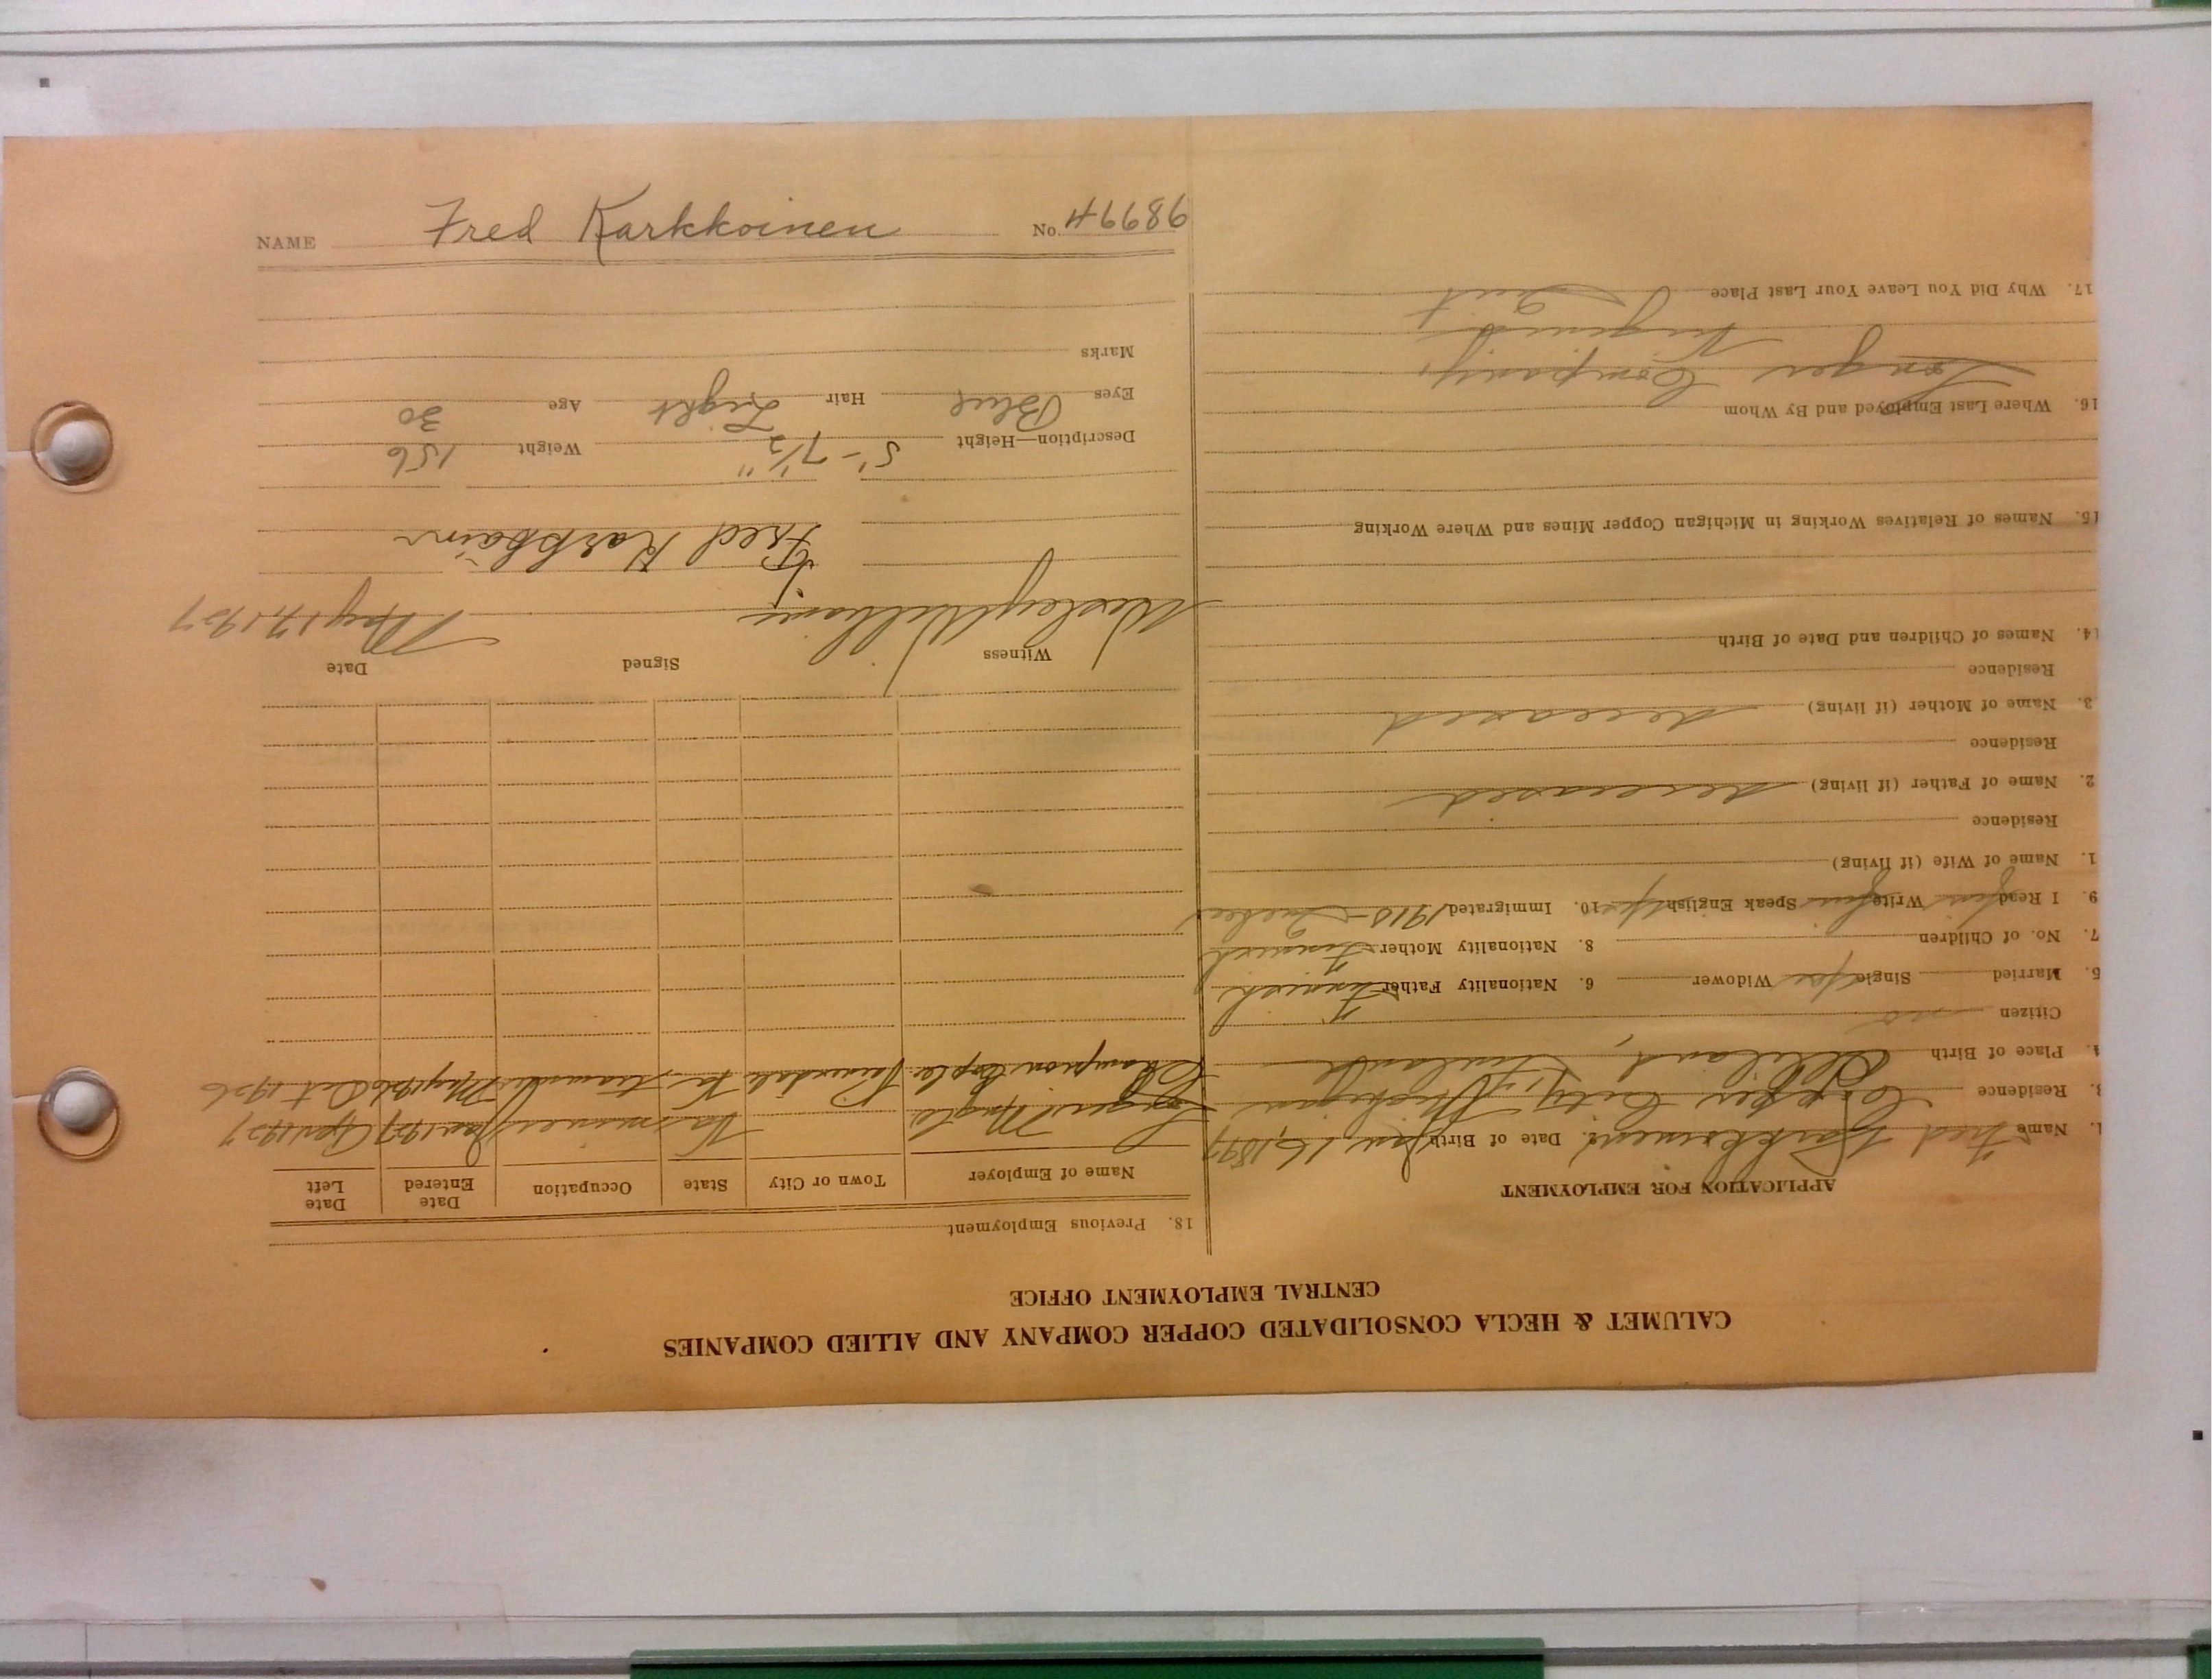 CALUMET & HECLA CONSOLIDATED COPPER COMPANY AND ALLIED COMPANIES
CENTRAL EMPLOYMENT OFFICE
APPLICATION FOR EMPLOYMENT
1. Name Fred Karkkoinen 2. Date of Birth Jan. 16, 1897
3. Residence Copper City, Michigan
4. Place of Birth
Citizen no
5. Married Single yes Widower 6. Nationality Father Finnish
7. No. of Children 8. Nationality Mother Finnish
9. I Read yes Write yes Speak English yes 10. Immigrated 1910 - Quebec
1. Name of Wife (if living)
Residence
2. Name of Father (if living) deceased
Residence
3. Name of Mother (if living) deceased
Residence
14. Names of Children and Date of Birth
15. Names of Relatives Working in Michigan Copper Mines and Where Working
16. Where Last Employed and By Whom
Company,
17. Why Did You Leave Your Last Place Quit
18. Previous Employment
Name of Employer Town or City State Occupation Date Entered Date Left
Jan 1927 Apr 1927
Champion Copper Painesdale trammer May 1926 Oct 1926
Witness Signed Date
Wesley Williams May 17, 1927
Fred
Description—Height 5'-7½" Weight 156
Eyes Blue Hair Light Age 30
Marks
NAME Fred Karkkoinen No. 48994